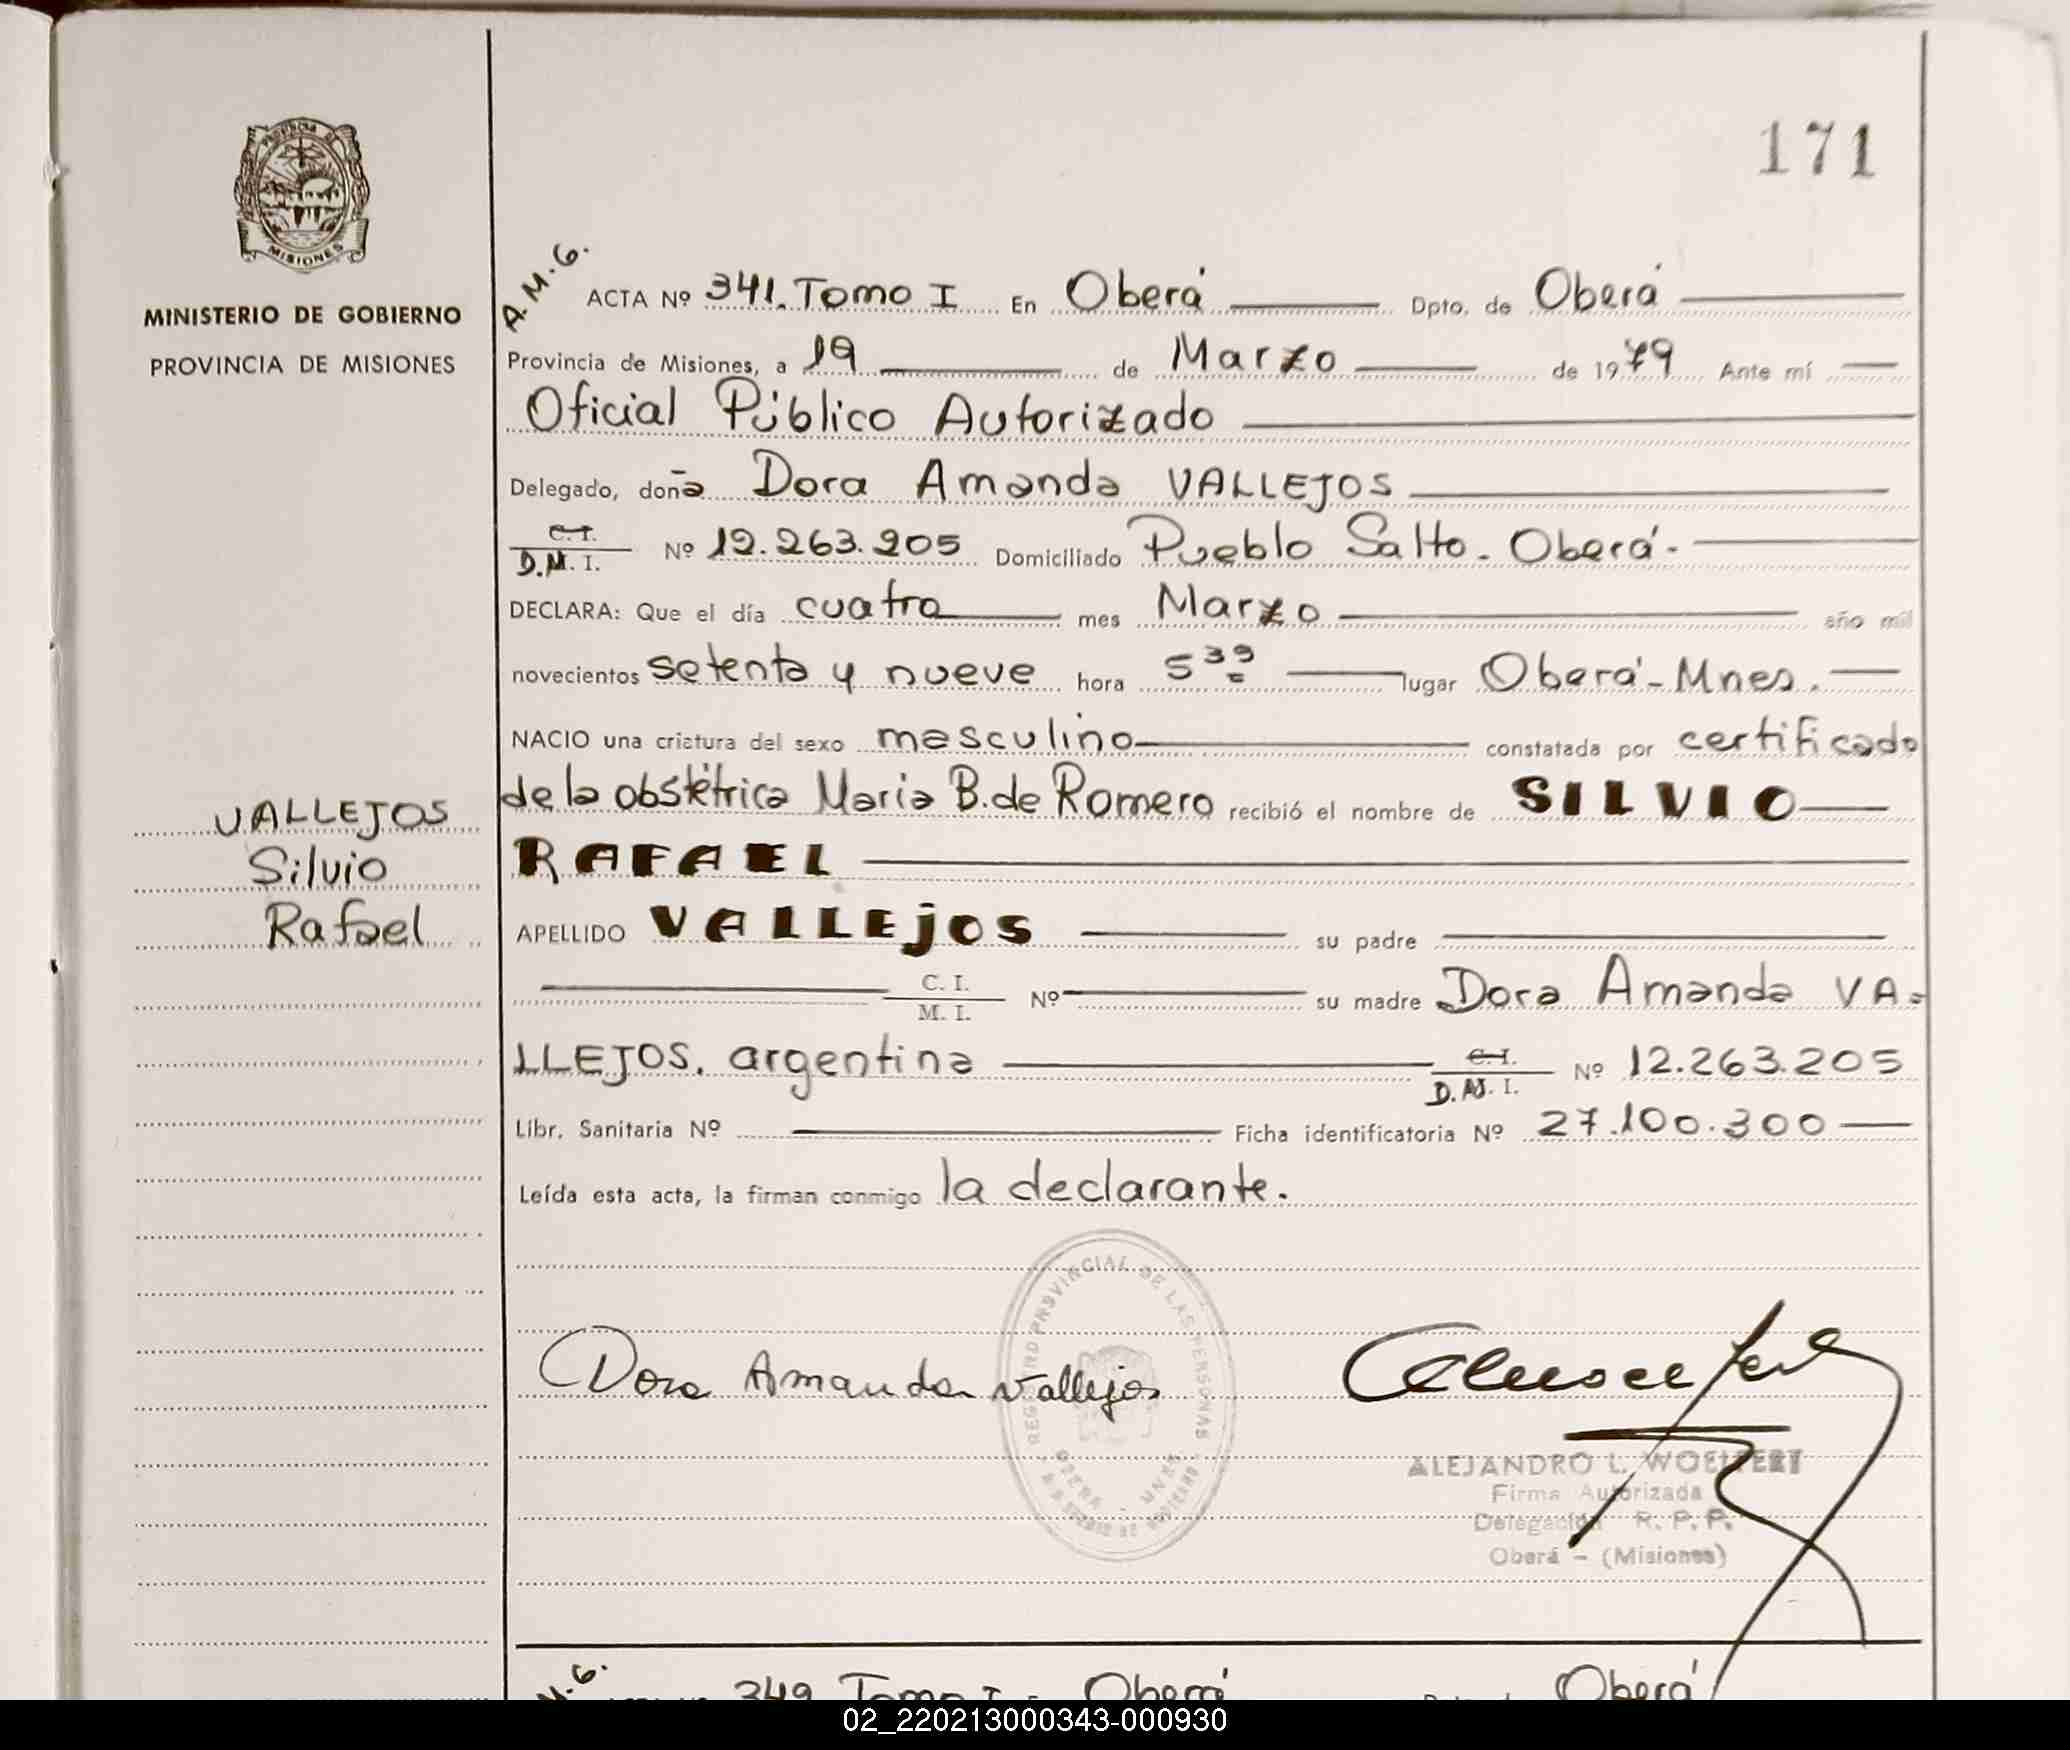 171
PROVINCIA DE
MISIONES
MINISTERIO DE GOBIERNO
PROVINCIA DE MISIONES
A.M.G.
ACTA Nº 341. Tomo I En Oberá Dpto. de Oberá
Provincia de Misiones, a 19 de Marzo de 1979 Ante mí
Oficial Público Autorizado
Delegado, doña Dora Amanda VALLEJOS
C. I.
D.M. I. Nº 12.263.205 Domiciliado Pueblo Salto - Oberá.
DECLARA: Que el día cuatro mes Marzo año mil
novecientos setenta y nueve hora 5 39 lugar Oberá - Mnes.
NACIO una criatura del sexo masculino constatada por certificado
de la obstétrica Maria B. de Romero recibió el nombre de SILVIO
RAFAEL
VALLEJOS
Silvio
Rafael
APELLIDO VALLEJOS su padre
C. I.
M. I. Nº su madre Dora Amanda VA=
LLEJOS. argentina C. I. Nº 12.263.205
D. M. I.
Libr. Sanitaria Nº Ficha identificatoria Nº 27.100.300
Leída esta acta, la firman conmigo la declarante.
REGISTRO PROVINCIAL DE LAS PERSONAS
OBERA - MNES
Dora Amanda Vallejos
ALEJANDRO L. WOELFERT
Firma Autorizada
Delegación R. P. P.
Oberá - (Misiones)
Tomo I - Oberá Oberá
02_220213000343-000930